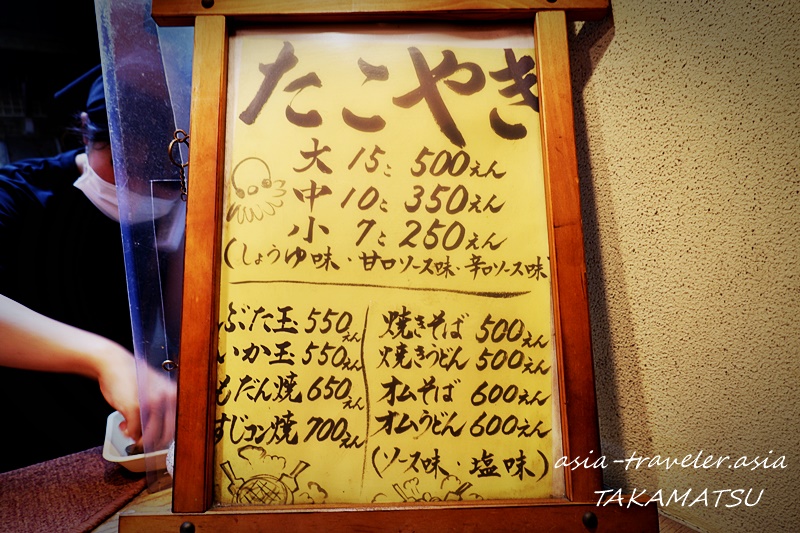 たこやき
大 15こ 500えん
中 10こ 350えん
小 7こ 250えん
(しょうゆ味・甘口ソース味・辛口ソース味
ぶた玉 550えん
いか玉 550えん
もだん焼 650えん
すじコン焼 700えん
焼きそば 500えん
焼きうどん 500えん
オムそば 600えん
オムうどん 600えん
(ソース味・塩味)
asia-traveler.asia
TAKAMATSU